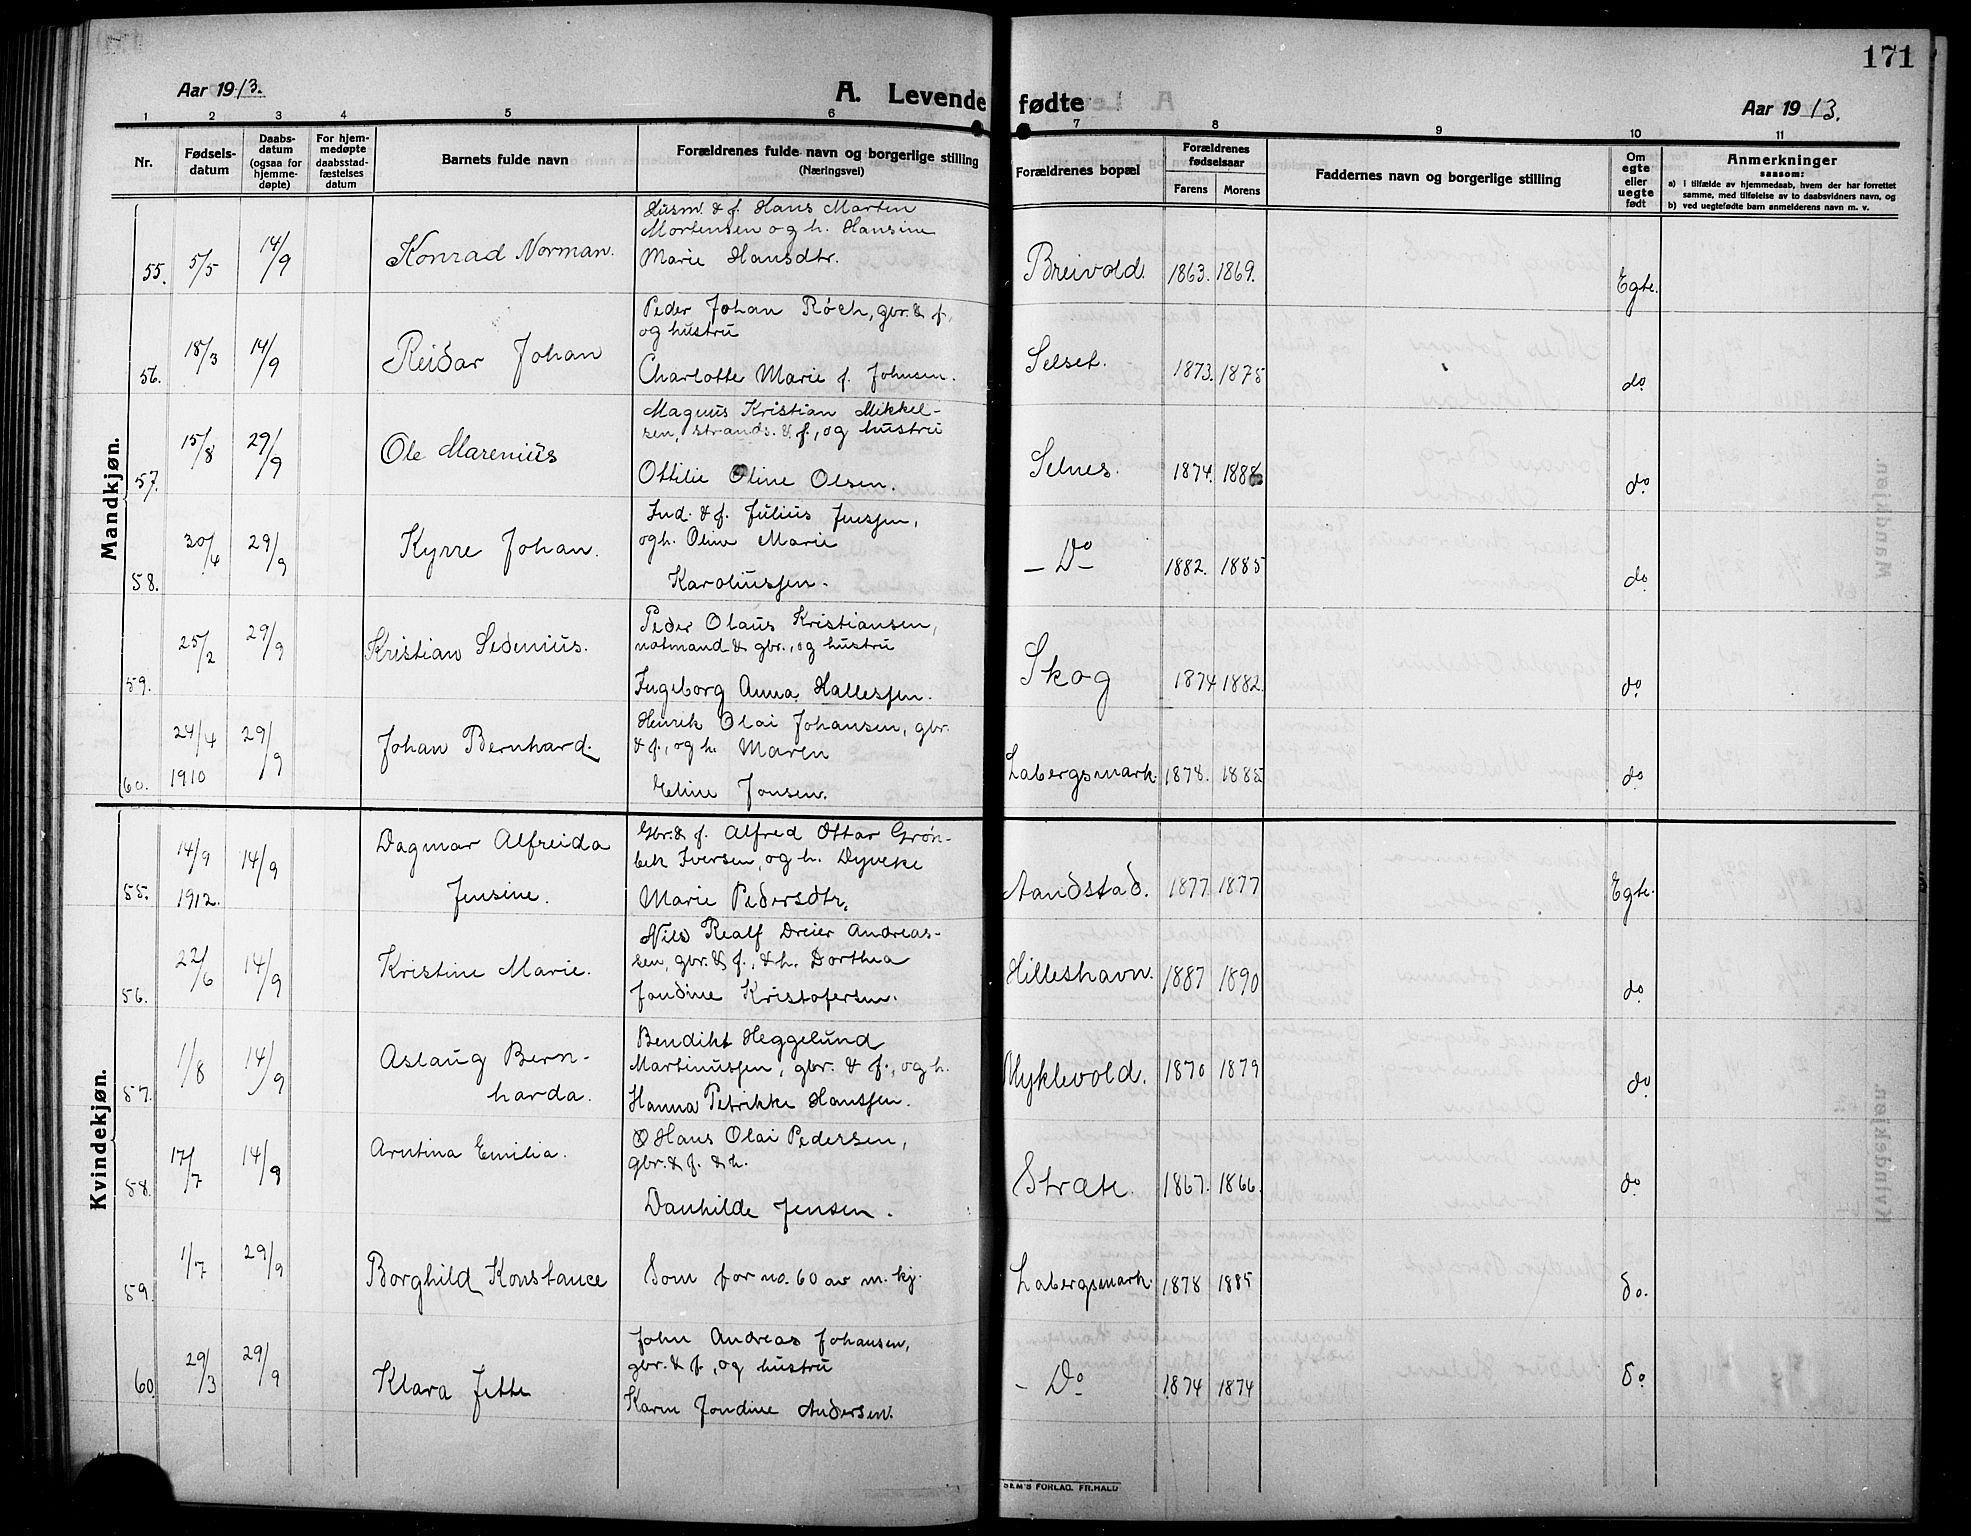 171
Aar 1913.
A. Levende fødte
Aar 1913.
1 2 3 4 5 6 7 8 9 10 11
Nr.
Fødsels-
datum
Daabs-
datum
(ogsaa for
hjemme-
døpte)
For hjem-
medøpte
daabsstad-
fæstelses
datum
Barnets fulde navn
Forældrenes fulde navn og borgerlige stilling
(Næringsvei)
Forældrenes bopæl
Forældrenes
fødselsaar
Farens Morens
Faddernes navn og borgerlige stilling
Om
egte
eller
uegte
født
Anmerkninger
saasom:
a) i tilfælde av hjemmedaab, hvem der har forrettet
samme, med tilføielse av to daabsvidners navn, og
b) ved uegtefødte barn anmelderens navn m. v.
Mandkjøn.
Husm. & f. Hans Marten
Mortensen og h. Hansine
55. 5/5 14/9 Konrad Norman. Marie Hansdtr. Breivold. 1863. 1869. Egte.
Peder Johan Røch, gbr. & f.
og hustru
56. 18/3 14/9 Reidar Johan Charlotte Marie f. Johnsen. Selset. 1873. 1875 do
Magnus Kristian Mikkel-
sen, strands. & f., og hustru
57. 15/8 29/9 Ole Marenius Ottilie Oline Olsen. Selnes. 1874. 1888 do
Ind. & f. Julius Jenssen,
ogh. Oline Marie
58. 30/4 29/9 Kyrre Johan. Karoliussen. – Do – 1882. 1885 do
Peder Olaus Kristiansen,
notmand & gbr., og hustru
59. 25/2 29/9 Kristian Sedenius. Ingeborg Anna Hallessen. Skog 1874 1882. do
Henrik Olai Johansen, gbr.
24/4 29/9 Johan Bernhard. & f., og h. Maren
60. 1910 Eline Jonsen. Labergsmark. 1878. 1885 do
Kvindekjøn.
14/9 14/9 Dagmar Alfreida Gbr. & f. Alfred Ottar Grøn-
bek Iversen, og h. Dyveke
55. 1912. Jensine. Marie Pedersdtr. Aandstad. 1877. 1877 Egte.
Nils Realf Dreier Andreas-
sen, gbr. & f., & h. Dorthea
56. 22/6 14/9 Kristine Marie. Jondine Kristofersen. Hilleshavn. 1887 1890 do
Bendikt Heggelund
Aslaug Bern- Martinussen, gbr. & f., og h.
57. 1/8 14/9 harda. Hanna Petrikke Hanssen. Myklevold. 1870 1879 do
Hans Olai Pedersen,
gbr. & f. & h.
58. 17/7 14/9 Arntina Emilia. Danhilde Jensen. 1867. 1866. do
59. 1/7 29/9 Borghild Konstance Som for no. 60 av m. kj. Labergsmark. 1878 1885 do.
John Andreas Johansen,
gbr. & f., og hustru
60. 29/3 29/9 Klara Jette Karen Jondine Andersen. – Do 1874 1874 do
SEM'S FORLAG. FR.HALD